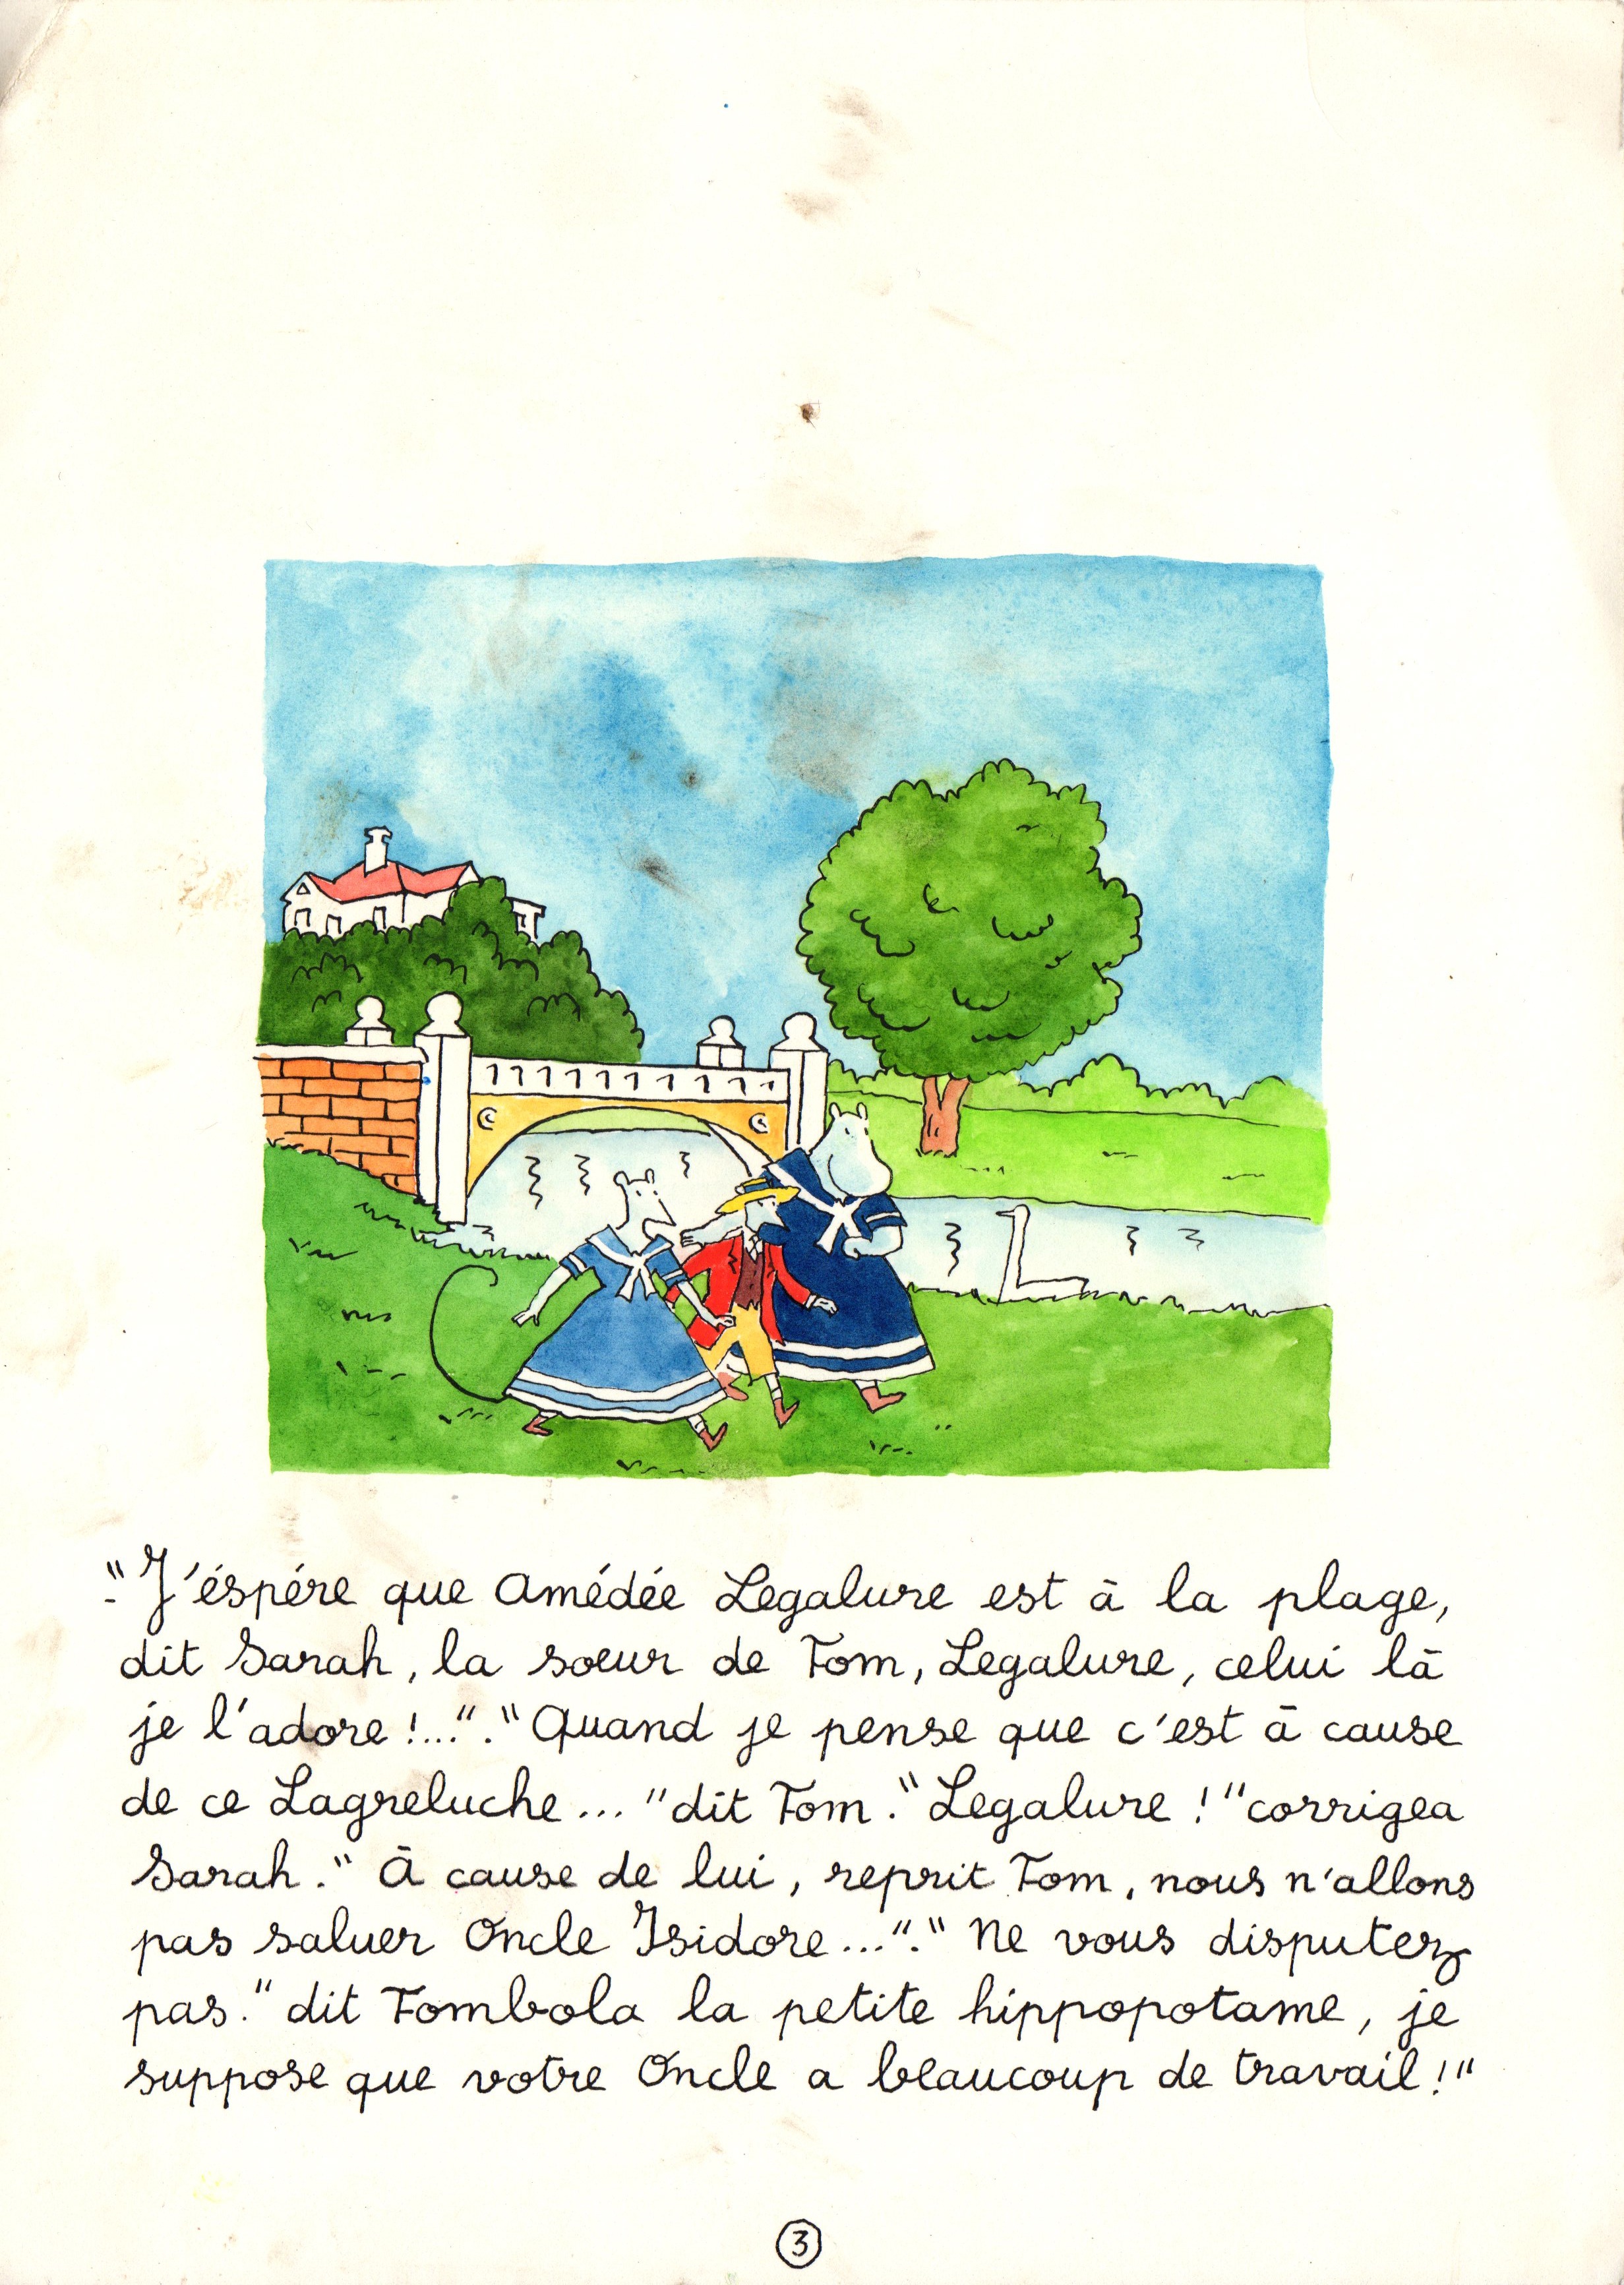 "J'éspére que Amédée Legalure est à la plage,
dit Sarah, la soeur de Tom, Legalure, celui là
je l'adore !..." . "Quand je pense que c'est à cause
de ce Lagreluche... "dit Tom. "Legalure !" corrigea
Sarah. " À cause de lui, reprit Tom, nous n'allons
pas saluer Oncle Isidore..." . " Ne vous disputez
pas." dit Tombola la petite hippopotame, je
suppose que votre Oncle a beaucoup de travail !"
3